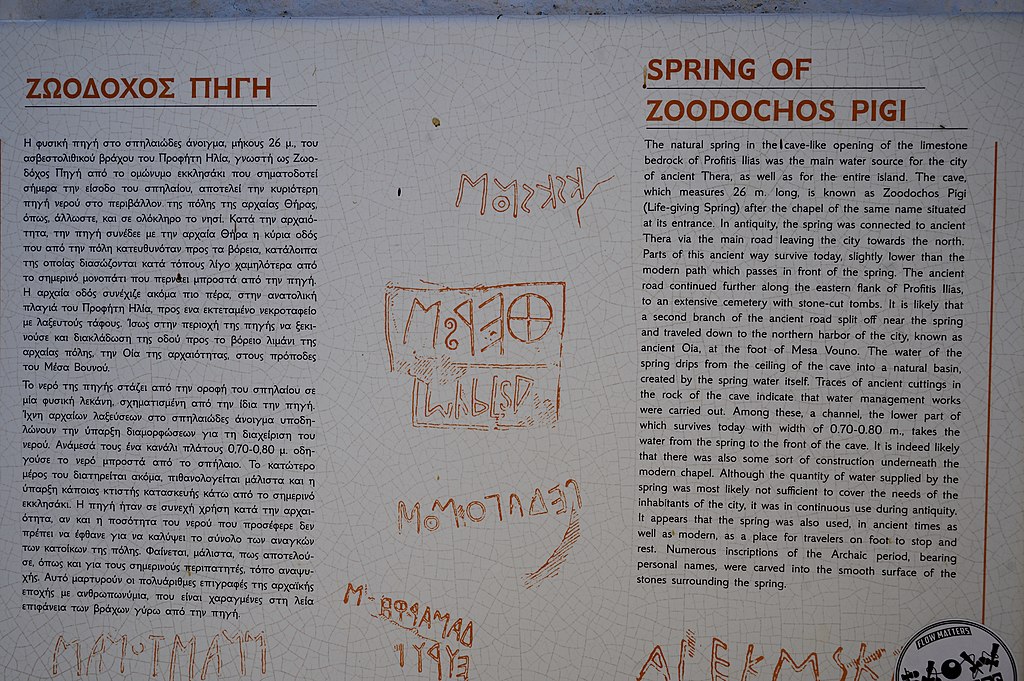 ΖΩΟΔΟΧΟΣ ΠΗΓΗ
Η φυσική πηγή στο σπηλαιώδες άνοιγμα, μήκους 26 μ., του
ασβεστολιθικού βράχου του Προφήτη Ηλία, γνωστή ως Ζωο-
δόχος Πηγή από το ομώνυμο εκκλησάκι που σηματοδοτεί
σήμερα την είσοδο του σπηλαίου, αποτελεί την κυριότερη
πηγή νερού στο περιβάλλον της πόλης της αρχαίας Θήρας,
όπως, άλλωστε, και σε ολόκληρο το νησί. Κατά την αρχαιό-
τητα, την πηγή συνέδεε με την αρχαία Θήρα η κύρια οδός
που από την πόλη κατευθυνόταν προς τα βόρεια, κατάλοιπα
της οποίας διασώζονται κατά τόπους λίγο χαμηλότερα από
το σημερινό μονοπάτι που περνάει μπροστά από την πηγή.
Η αρχαία οδός συνέχιζε ακόμα πιο πέρα, στην ανατολική
πλαγιά του Προφήτη Ηλία, προς ενα εκτεταμένο νεκροταφείο
με λαξευτούς τάφους. Ίσως στην περιοχή της πηγής να ξεκι-
νούσε και διακλάδωση της οδού προς το βόρειο λιμάνι της
αρχαίας πόλης, την Οία της αρχαιότητας, στους πρόποδες
του Μέσα Βουνού.
Το νερό της πηγής στάζει από την οροφή του σπηλαίου σε
μία φυσική λεκάνη, σχηματισμένη από την ίδια την πηγή.
Ίχνη αρχαίων λαξεύσεων στο σπηλαιώδες άνοιγμα υποδη-
λώνουν την ύπαρξη διαμορφώσεων για τη διαχείριση του
νερού. Ανάμεσά τους ένα κανάλι πλάτους 0,70-0,80 μ. οδη-
γούσε το νερό μπροστά από το σπήλαιο. Το κατώτερο
μέρος του διατηρείται ακόμα, πιθανολογείται μάλιστα και η
ύπαρξη κάποιας κτιστής κατασκευής κάτω από το σημερινό
εκκλησάκι. Η πηγή ήταν σε συνεχή χρήση κατά την αρχαι-
ότητα, αν και η ποσότητα του νερού που προσέφερε δεν
πρέπει να έφθανε για να καλύψει το σύνολο των αναγκών
των κατοίκων της πόλης. Φαίνεται, μάλιστα, πως αποτελού-
σε, όπως και για τους σημερινούς περιπατητές, τόπο αναψυ-
χής. Αυτό μαρτυρούν οι πολυάριθμες επιγραφές της αρχαϊκής
εποχής με ανθρωπωνύμια, που είναι χαραγμένες στη λεία
επιφάνεια των βράχων γύρω από την πηγή.
SPRING OF
ZOODOCHOS PIGI
The natural spring in the cave-like opening of the limestone
bedrock of Profitis Ilias was the main water source for the city
of ancient Thera, as well as for the entire island. The cave,
which measures 26 m. long, is known as Zoodochos Pigi
(Life-giving Spring) after the chapel of the same name situated
at its entrance. In antiquity, the spring was connected to ancient
Thera via the main road leaving the city towards the north.
Parts of this ancient way survive today, slightly lower than the
modern path which passes in front of the spring. The ancient
road continued further along the eastern flank of Profitis Ilias,
to an extensive cemetery with stone-cut tombs. It is likely that
a second branch of the ancient road split off near the spring
and traveled down to the northern harbor of the city, known as
ancient Oia, at the foot of Mesa Vouno. The water of the
spring drips from the ceiling of the cave into a natural basin,
created by the spring water itself. Traces of ancient cuttings in
the rock of the cave indicate that water management works
were carried out. Among these, a channel, the lower part of
which survives today with width of 0.70-0.80 m., takes the
water from the spring to the front of the cave. It is indeed likely
that there was also some sort of construction underneath the
modern chapel. Although the quantity of water supplied by the
spring was most likely not sufficient to cover the needs of the
inhabitants of the city, it was in continuous use during antiquity.
It appears that the spring was also used, in ancient times as
well as modern, as a place for travelers on foot to stop and
rest. Numerous inscriptions of the Archaic period, bearing
personal names, were carved into the smooth surface of the
stones surrounding the spring.
FLOW MATTERS